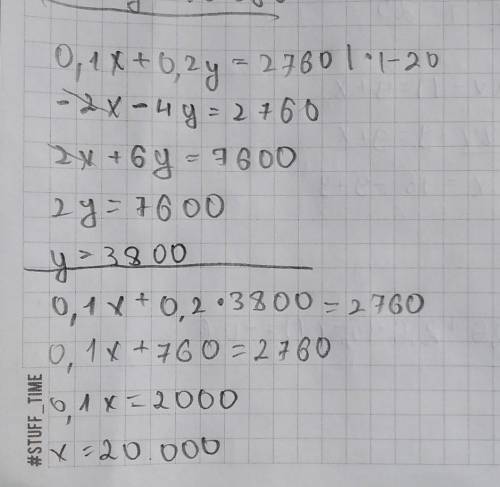 0,1x + 0,2y = 2760 | · |-20
-2x - 4y = 2760
2x + 6y = 7600
2y = 7600
y = 3800
0,1x + 0,2 · 3800 = 2760
0,1x + 760 = 2760
0,1x = 2000
x = 20.000
#STUFF_TIME